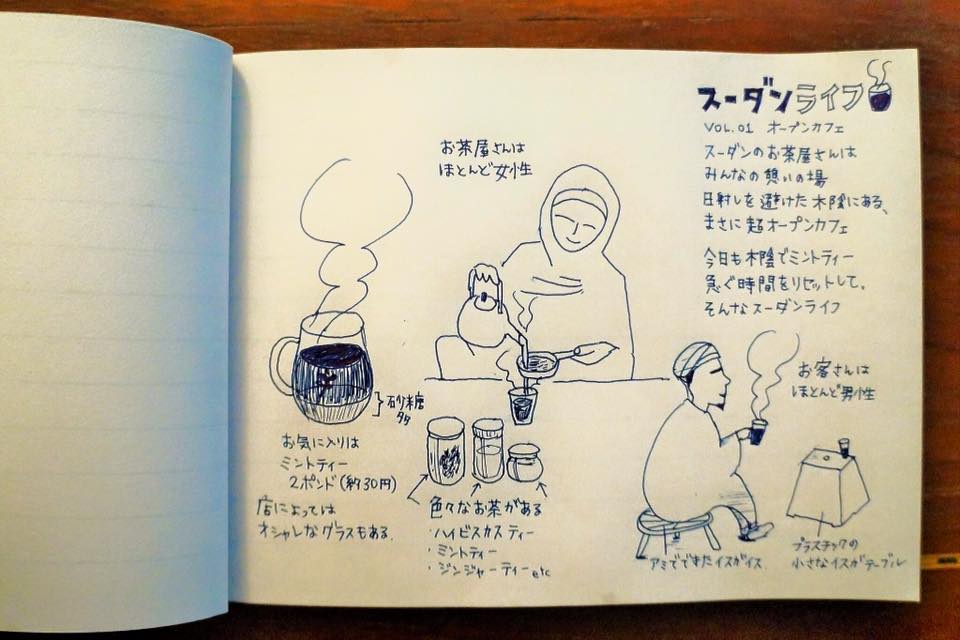 スーダンライフ
VOL.01 オープンカフェ
スーダンのお茶屋さんは
みんなの憩いの場
日射しを避けた木陰にある、
まさに超オープンカフェ
今日も木陰でミントティー
急ぐ時間をリセットして、
そんなスーダンライフ
お茶屋さんは
ほとんど女性
砂糖
多
お気に入りは
ミントティー
2ポンド(約30円)
店によっては
オシャレなグラスもある。
色々なお茶がある
・ハイビスカスティー
・ミントティー
・ジンジャーティー etc
お客さんは
ほとんど男性
アミでできたイスがイス
プラスチックの
小さなイスがテーブル